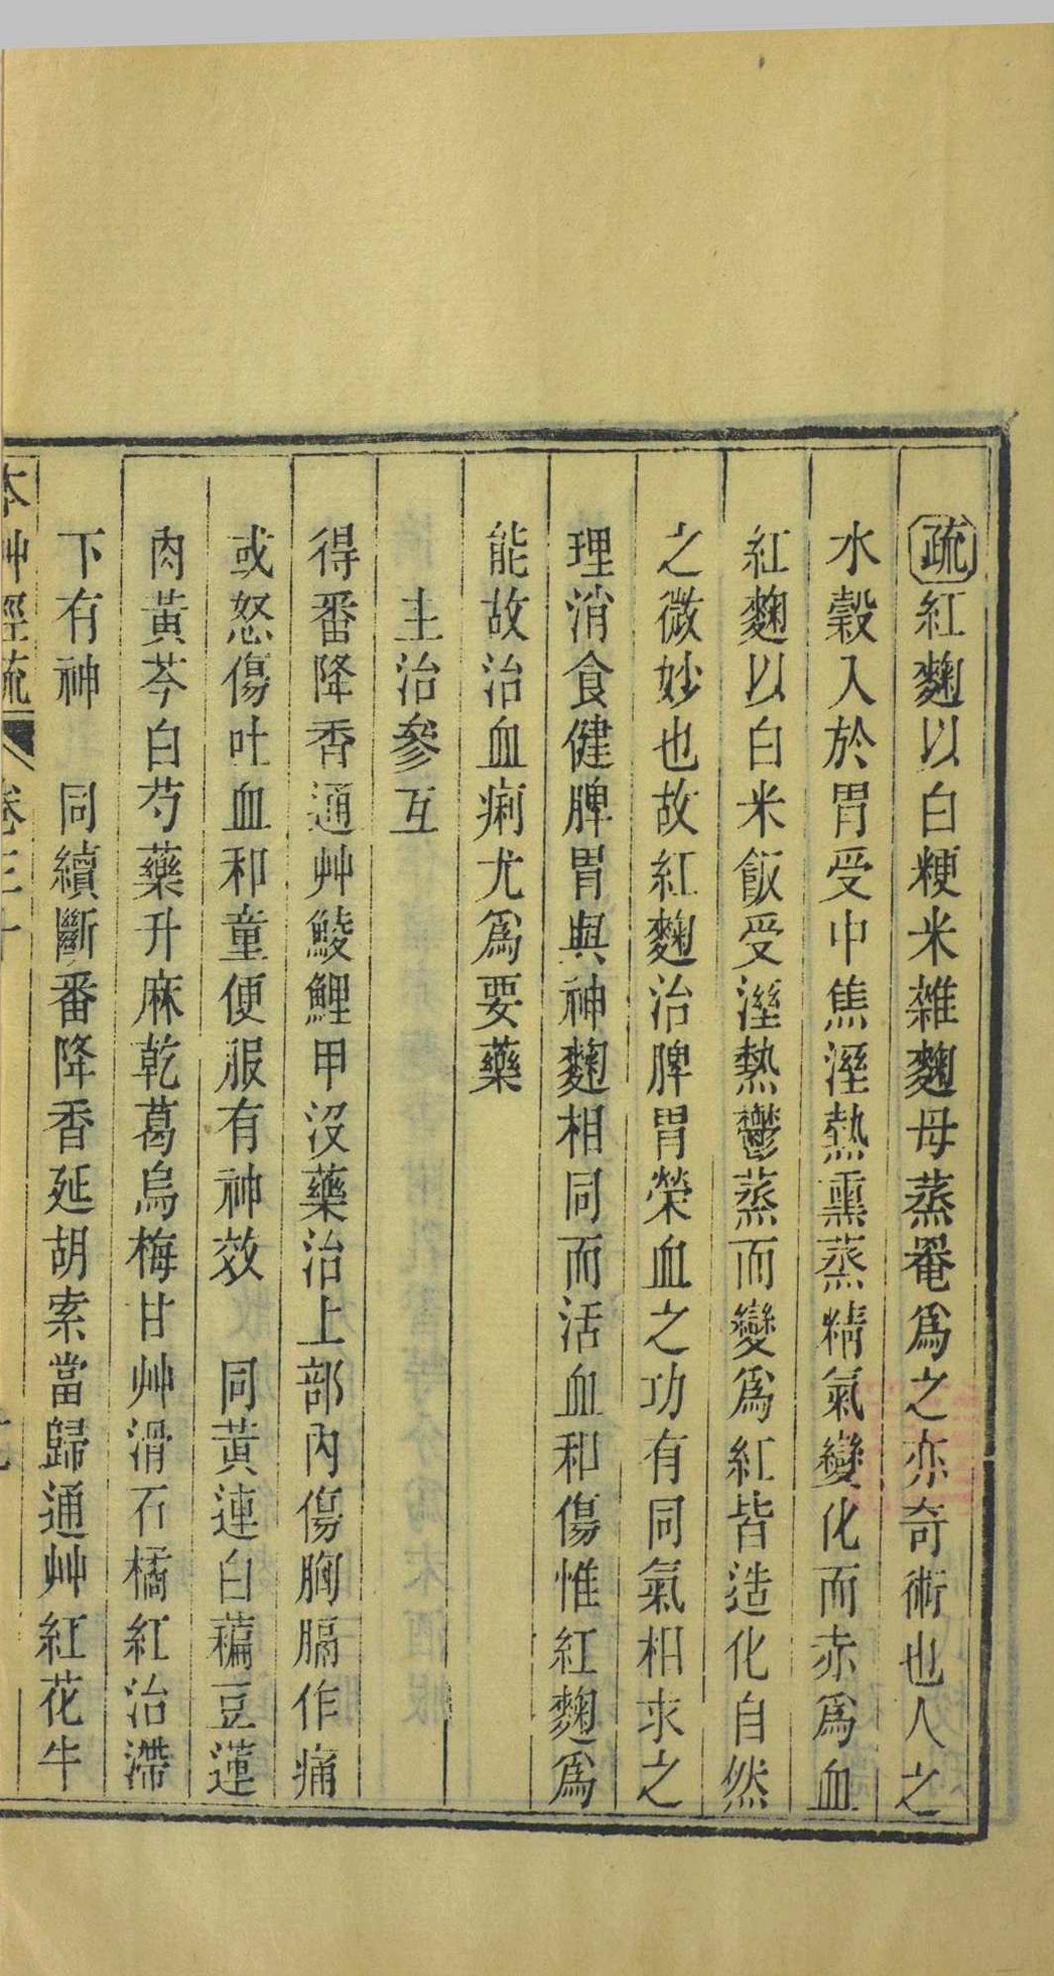 疏紅麴以白粳米雜麴母蒸罨爲之亦奇術也人之
水穀入於胃受中焦溼熱熏蒸精氣變化而赤爲血
紅麴以白米飯受溼熱鬱蒸而變爲紅皆造化自然
之微妙也故紅麴治脾胃榮血之功有同氣相求之
理消食健脾胃與神麴相同而活血和傷惟紅麴爲
能故治血痢尤爲要藥
主治參互
得番降香通艸鯪鯉甲沒藥治上部內傷胸膈作痛
或怒傷吐血和童便服有神效　同黃連白藊豆蓮
肉黃芩白芍藥升麻乾葛烏梅甘艸滑石橘紅治滯
下有神　同續斷番降香延胡索當歸通艸紅花牛
本艸經疏　卷三十